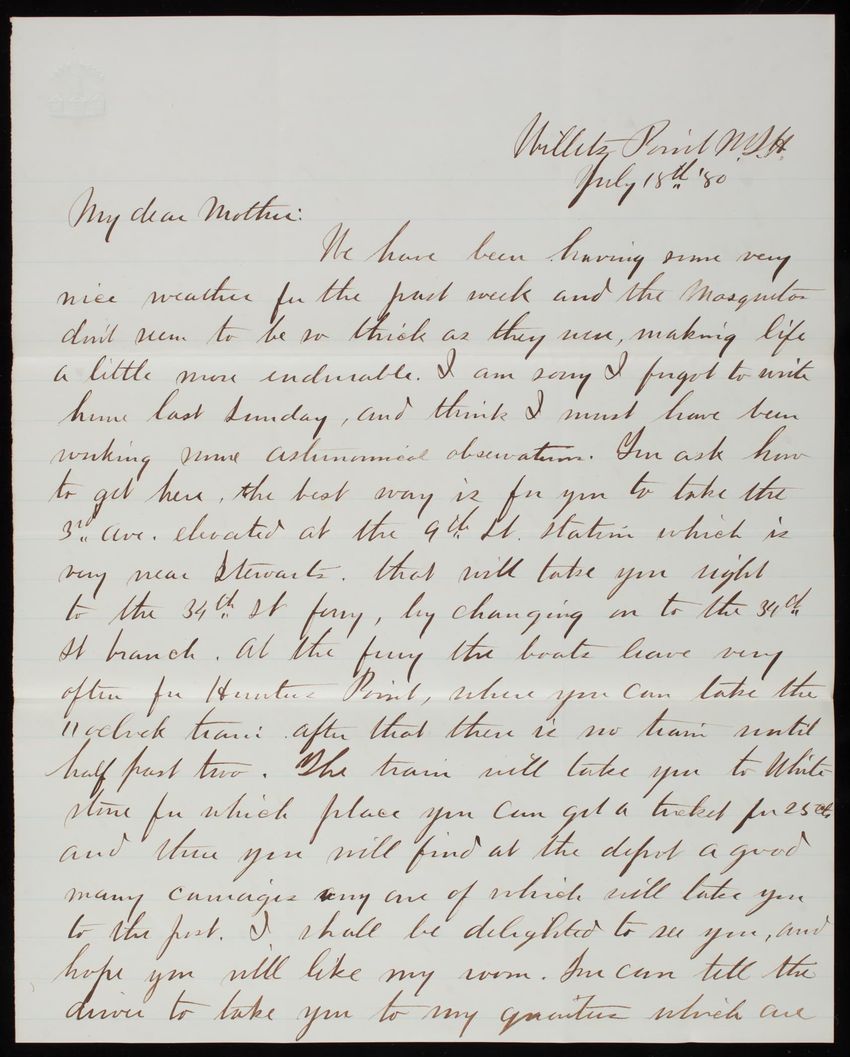 Willets Point N.Y.H.
July 18th '80
My dear Mother:
We have been having some very
nice weather for the past week and the Mosquitos
don't seem to be so thick as they were, making life
a little more endurable. I am sorry I forgot to write
home last Sunday, and think I must have been
working some astronomical observations. You ask how
to get here, the best way is for you to take the
3rd ave. elevated at the 9th St. station which is
very near Stewarts. that will take you right
to the 34th St ferry, by changing on to the 34th
St branch. At the ferry the boats leave very
often for Hunters Point, where you can take the
11 oclock train after that there is no train until
half past two. The train will take you to White
stone for which place you can get a ticket for 25 cts
and there you will find at the depot a good
many carriages any one of which will take you
to the post. I shall be delighted to see you, and
hope you will like my room. You can tell the
driver to take you to my quarters which are